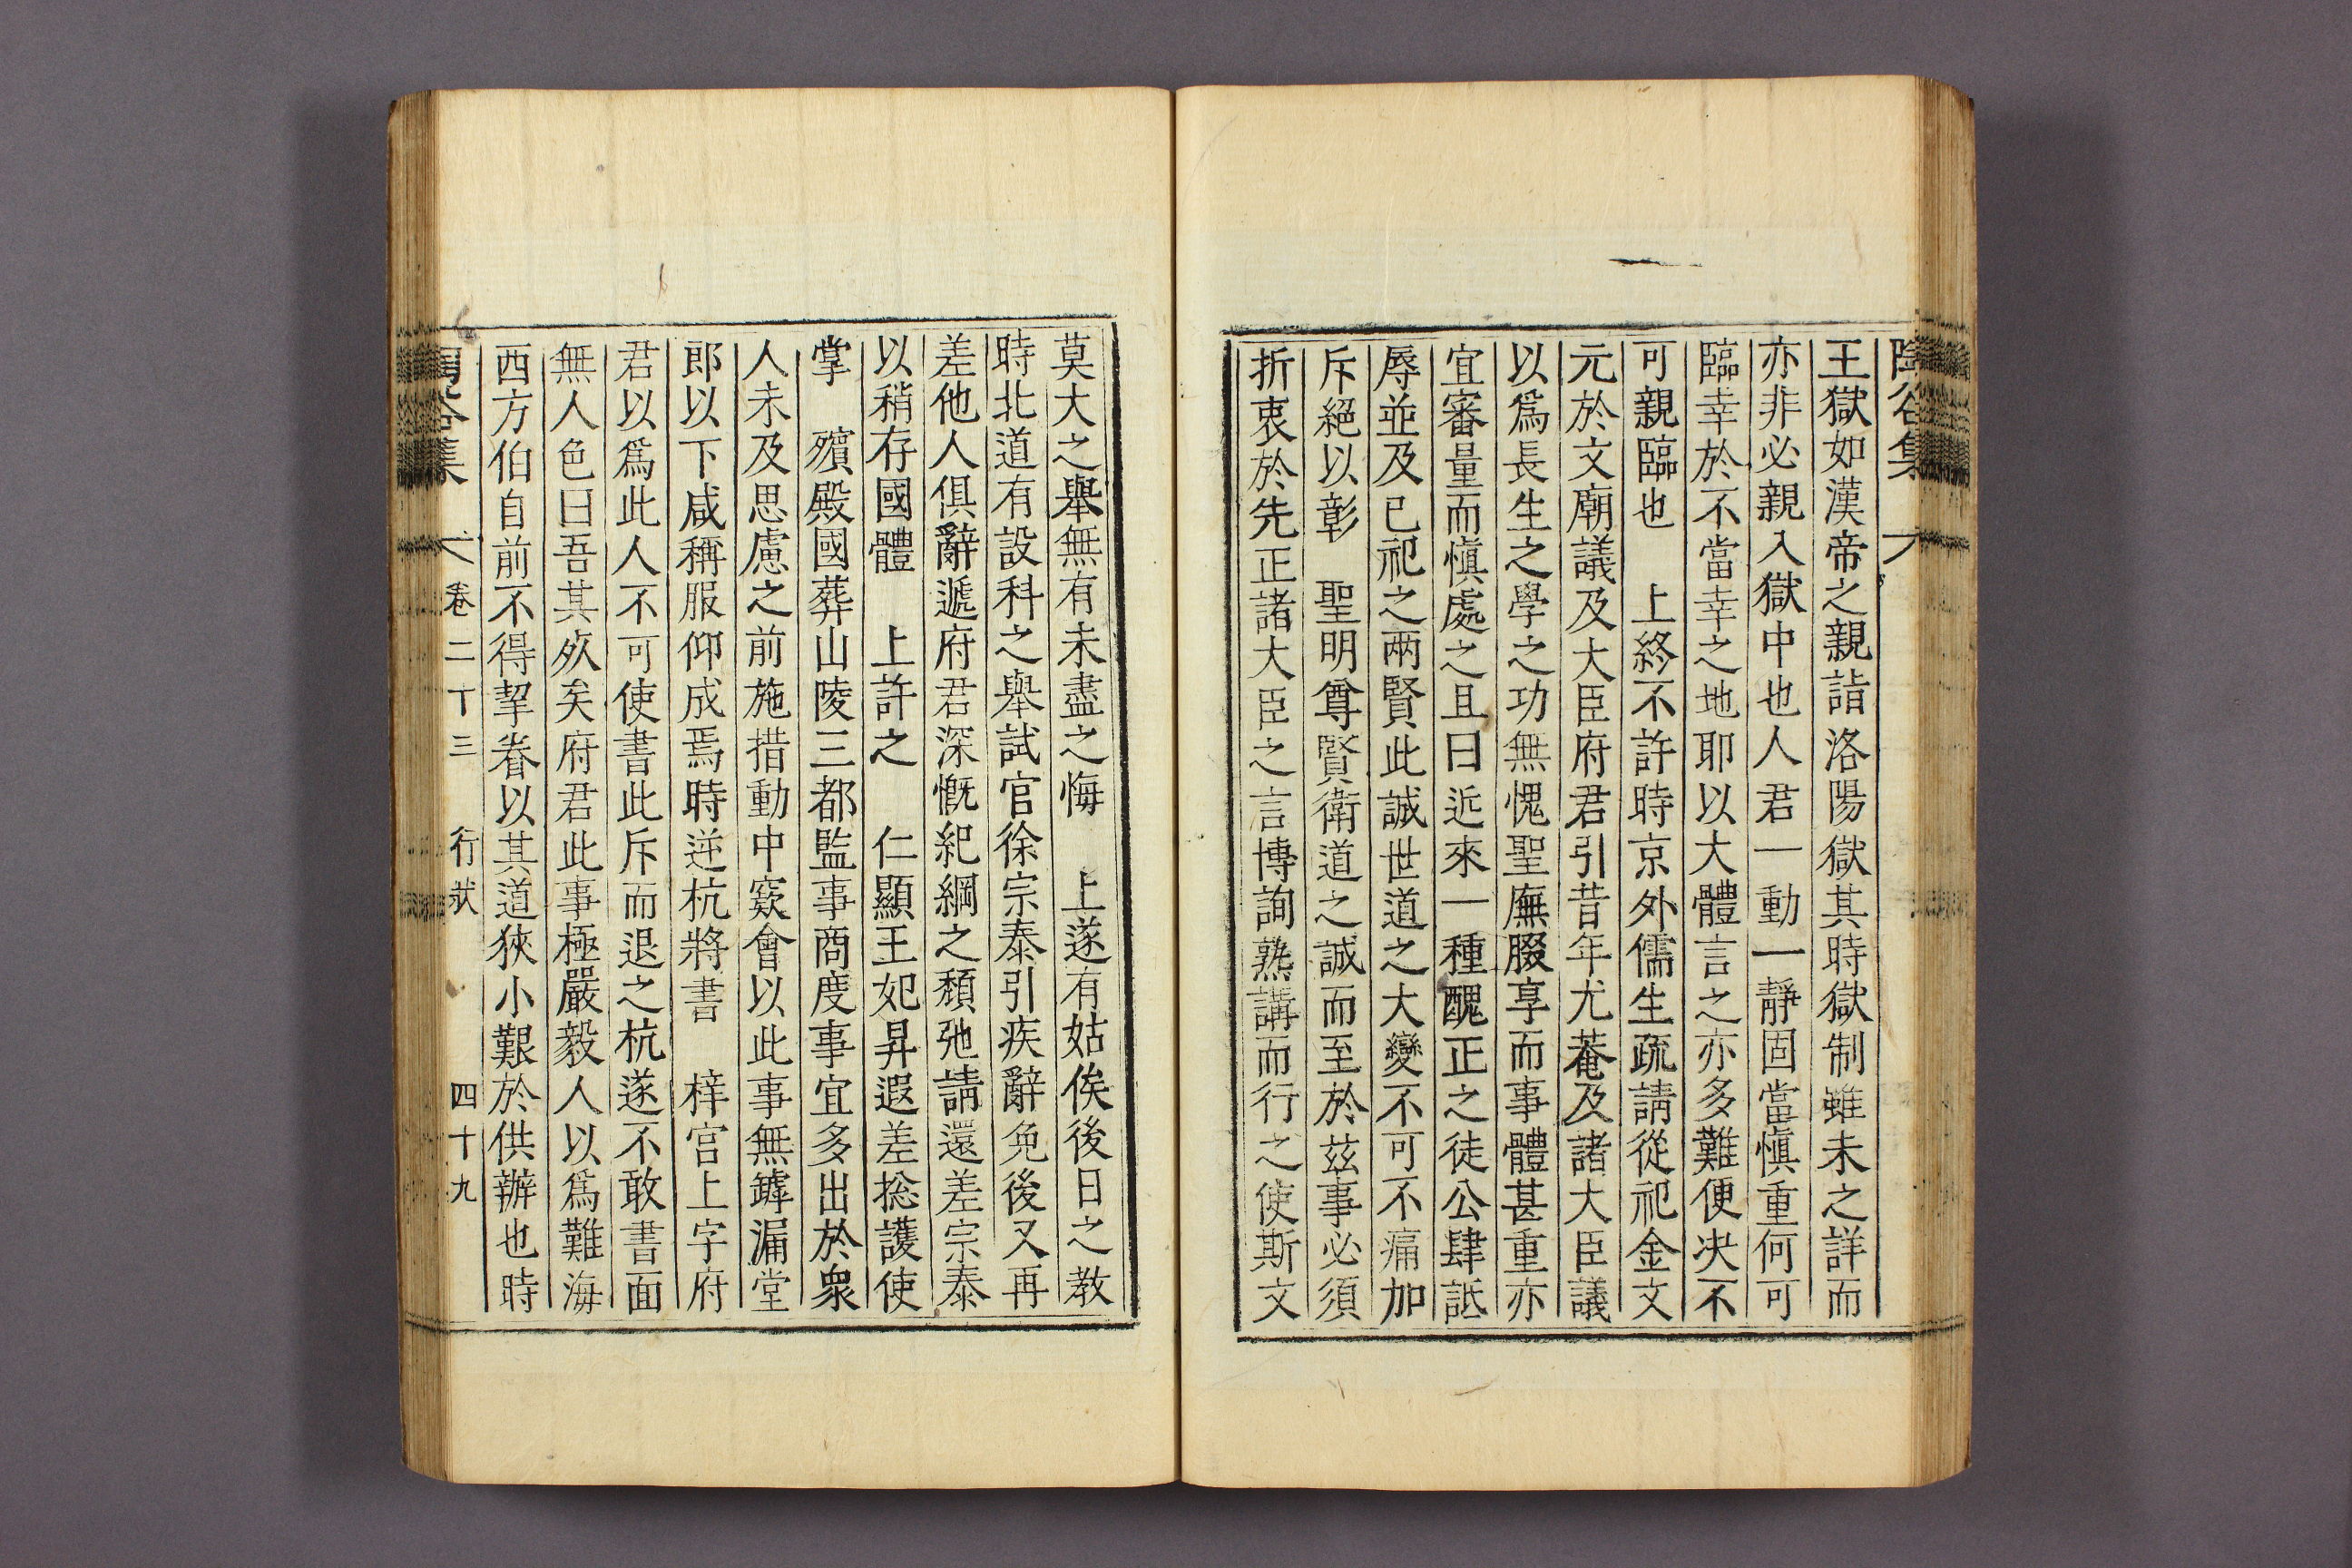 陶谷集
王獄如漢帝之親詣洛陽獄其時獄制雖未之詳而
亦非必親入獄中也人君一動一靜固當愼重何可
臨幸於不當幸之地耶以大體言之亦多難便决不
可親臨也　上終不許時京外儒生疏請從祀金文
元於文廟議及大臣府君引昔年尤菴及諸大臣議
以爲長生之學之功無愧聖廡腏享而事體甚重亦
宜審量而愼處之且曰近來一種醜正之徒公肆詆
辱並及已祀之兩賢此誠世道之大變不可不痛加
斥絕以彰　聖明尊賢衛道之誠而至於玆事必須
折衷於先正諸大臣之言博詢熟講而行之使斯文
莫大之擧無有未盡之悔　上遂有姑俟後日之教
時北道有設科之擧試官徐宗泰引疾辭免後又再
差他人俱辭遞府君深慨紀綱之頹弛請還差宗泰
以稍存國體　上許之　仁顯王妃昇遐差摠護使
掌　殯殿國葬山陵三都監事商度事宜多出於衆
人未及思慮之前施措動中窾會以此事無罅漏堂
郎以下咸稱服仰成焉時逆杭將書　梓宮上字府
君以爲此人不可使書此斥而退之杭遂不敢書面
無人色曰吾其㱡矣府君此事極嚴毅人以爲難海
西方伯自前不得挈眷以其道狹小艱於供辦也時
陶谷集　卷二十三　行狀　四十九